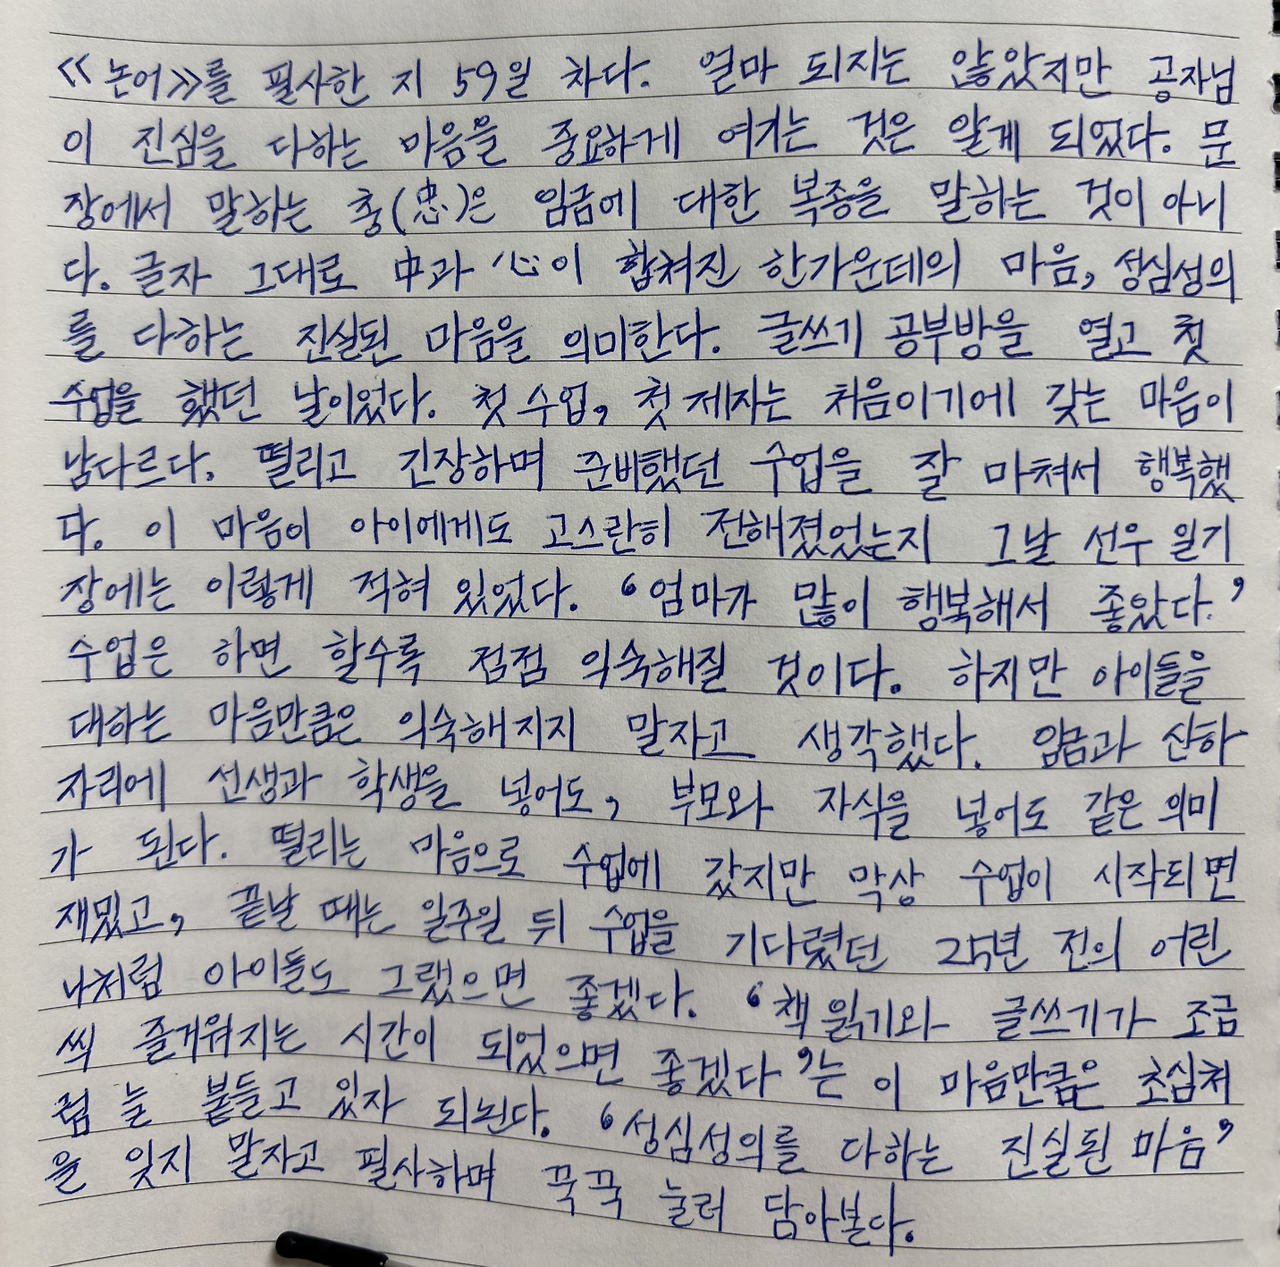 《논어》를 필사한 지 59일 차다. 얼마 되지는 않았지만 공자님
이 진심을 다하는 마음을 중요하게 여기는 것은 알게 되었다. 문
장에서 말하는 충(忠)은 임금에 대한 복종을 말하는 것이 아니
다. 글자 그대로 中과 心이 합쳐진 한가운데의 마음, 성심성의
를 다하는 진실된 마음을 의미한다. 글쓰기 공부방을 열고 첫
수업을 했던 날이었다. 첫 수업, 첫 제자는 처음이기에 갖는 마음이
남다르다. 떨리고 긴장하며 준비했던 수업을 잘 마쳐서 행복했
다. 이 마음이 아이에게도 고스란히 전해졌었는지 그날 선우 일기
장에는 이렇게 적혀 있었다. ‘엄마가 많이 행복해서 좋았다.’
수업은 하면 할수록 점점 익숙해질 것이다. 하지만 아이들을
대하는 마음만큼은 익숙해지지 말자고 생각했다. 임금과 신하
자리에 선생과 학생을 넣어도, 부모와 자식을 넣어도 같은 의미
가 된다. 떨리는 마음으로 수업에 갔지만 막상 수업이 시작되면
재밌고, 끝날 때는 일주일 뒤 수업을 기다렸던 25년 전의 어린
나처럼 아이들도 그랬으면 좋겠다. ‘책 읽기와 글쓰기가 조금
씩 즐거워지는 시간이 되었으면 좋겠다’는 이 마음만큼은 초심처
럼 늘 붙들고 있자 되뇐다. ‘성심성의를 다하는 진실된 마음’
을 잊지 말자고 필사하며 꾹꾹 눌러 담아본다.